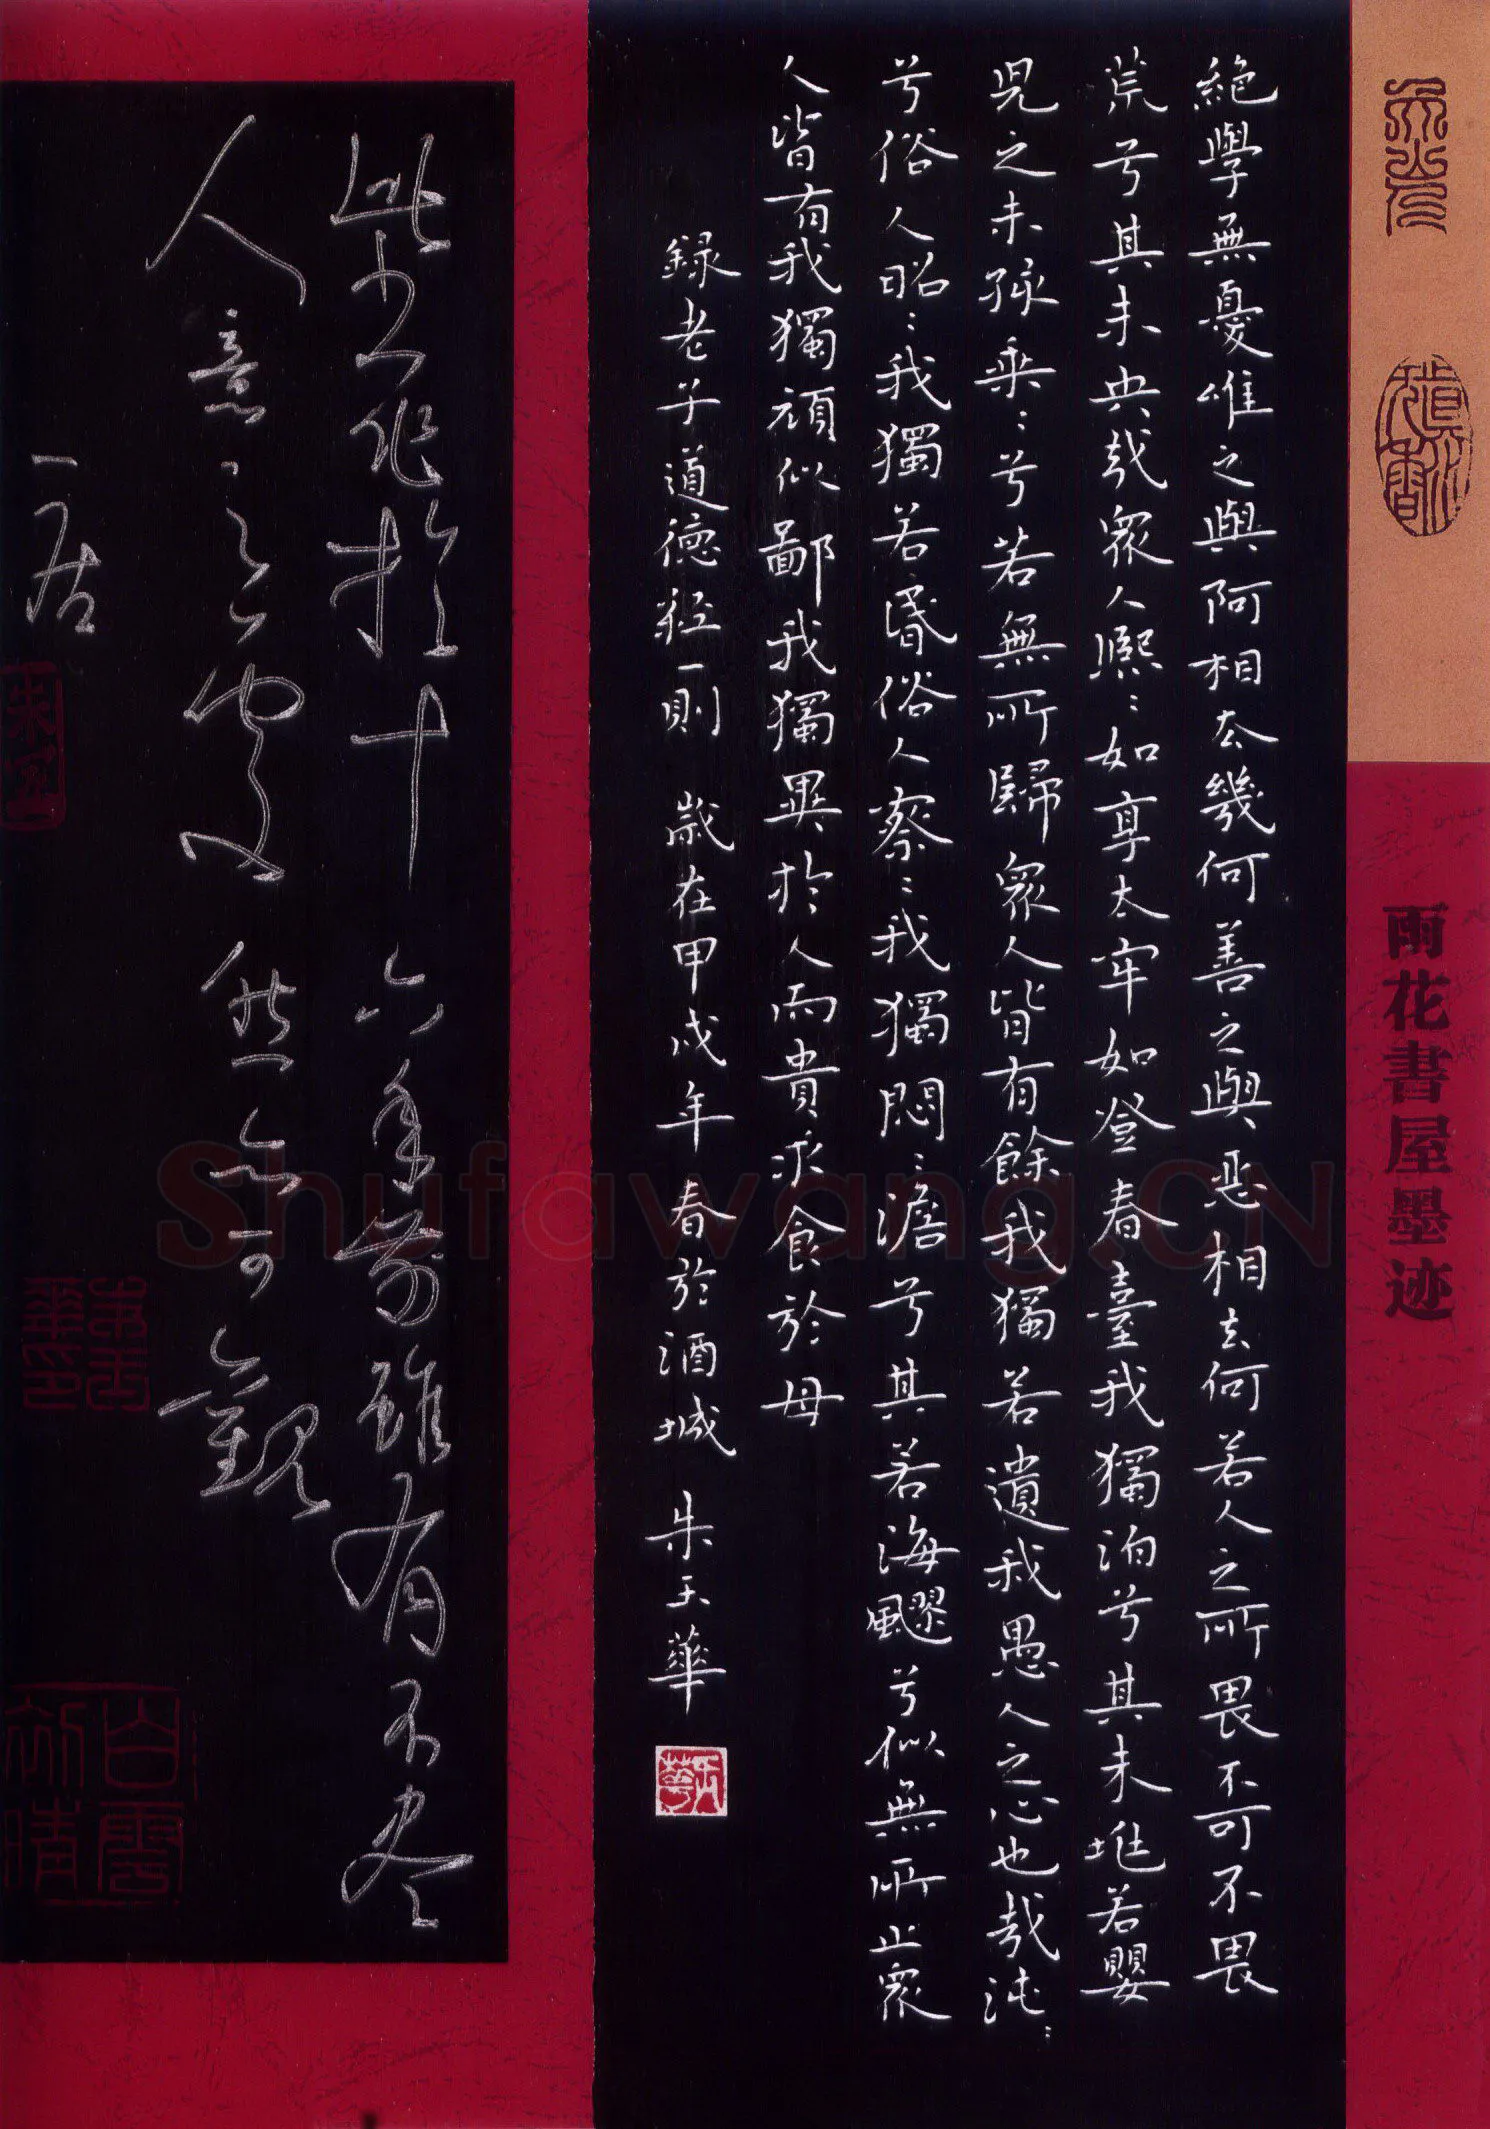 雨花書屋墨迹
絕學無憂唯之與阿相去幾何善之與惡相去何若人之所畏不可不畏
荒兮其未央哉眾人熙〻如享太牢如登春臺我獨泊兮其未垗若嬰
兒之未孩乘〻兮若無所歸眾人皆有餘我獨若遺我愚人之心也哉沌〻
兮俗人昭〻我獨若昏俗人察〻我獨悶〻澹兮其若海飂兮似無所止眾
人皆有我獨頑似鄙我獨異於人而貴求食於母
錄老子道德經一則 歲在甲戌年春於酒城 朱天華
此書作於十六年前雖有不盡
人意之處然亦可觀
一居
Shufawang.CN